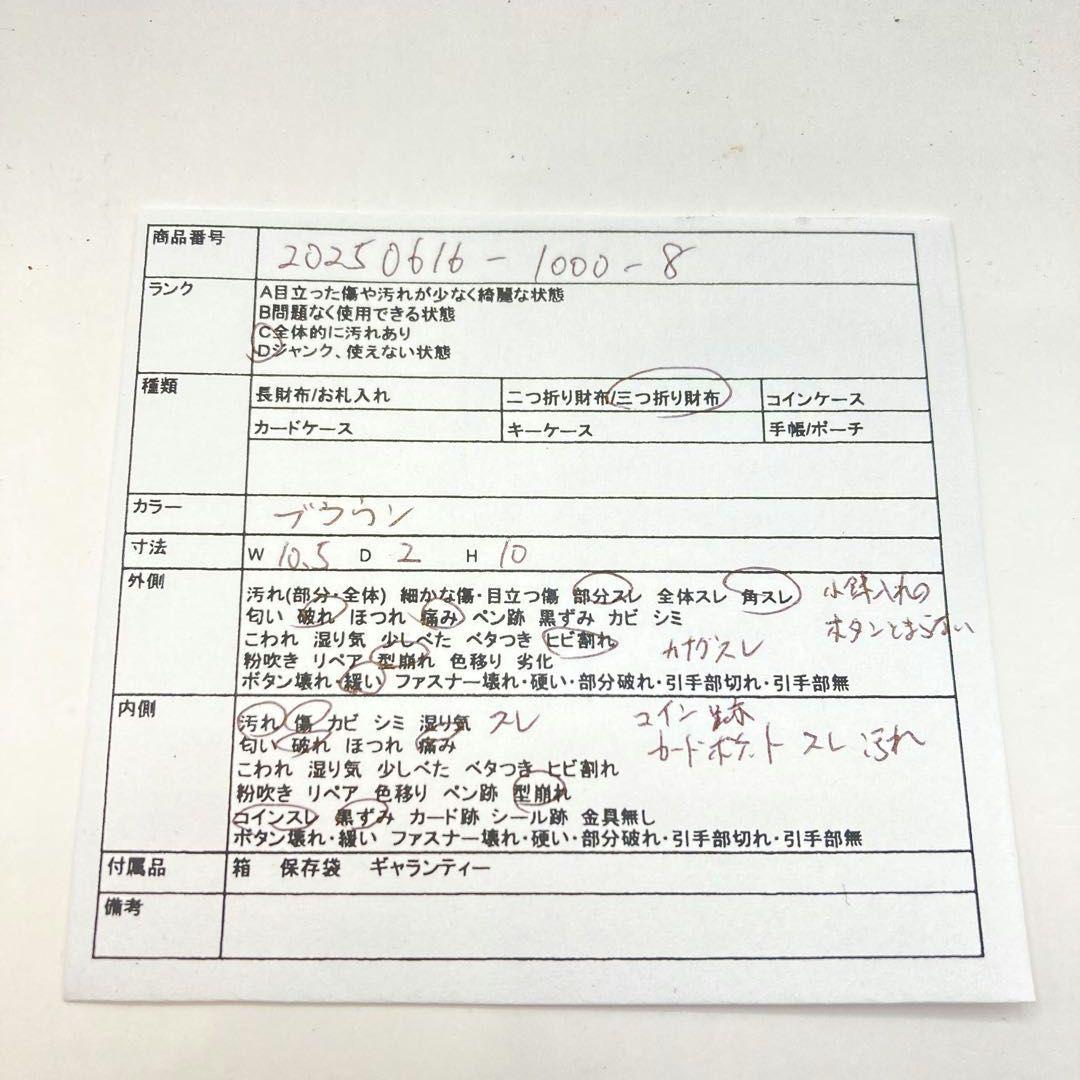 商品番号 20250616-1000-8
ランク
A目立った傷や汚れが少なく綺麗な状態
B問題なく使用できる状態
C全体的に汚れあり
Dジャンク、使えない状態
種類
長財布/お札入れ 二つ折り財布/三つ折り財布 コインケース
カードケース キーケース 手帳/ポーチ
カラー ブラウン
寸法 W 10.5 D 2 H 10
外側
汚れ(部分・全体) 細かな傷・目立つ傷 部分スレ 全体スレ 角スレ 小銭入れの
匂い 破れ ほつれ 痛み ペン跡 黒ずみ カビ シミ ボタンとまらない
こわれ 湿り気 少しべた ベタつき ヒビ割れ カナグスレ
粉吹き リペア 型崩れ 色移り 劣化
ボタン壊れ・緩い ファスナー壊れ・硬い・部分破れ・引手部切れ・引手部無
内側
汚れ 傷 カビ シミ 湿り気 スレ コイン跡
匂い 破れ ほつれ 痛み カードポケット スレ 汚れ
こわれ 湿り気 少しべた ベタつき ヒビ割れ
粉吹き リペア 色移り ペン跡 型崩れ
コインスレ 黒ずみ カード跡 シール跡 金具無し
ボタン壊れ・緩い ファスナー壊れ・硬い・部分破れ・引手部切れ・引手部無
付属品 箱 保存袋 ギャランティー
備考